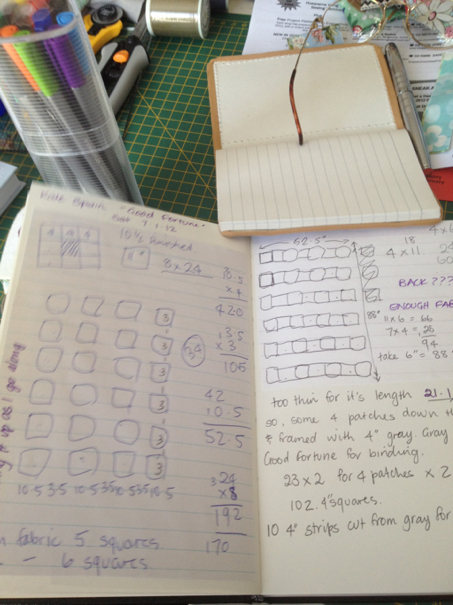 "Good Fortune"
4 4 4
10½ finished
11"
8 x 24
10.5
x 4
420
3.5
x 3
105
42
10.5
52.5
34
3
3
3
3
3
3
10.5 3.5 10.5 3.5 10.5 3.5 10.5
24
x 8
192
170
it up as I go along
fabric 5 squares
- 6 squares
52.5"
88"
18
4 x 11
BACK ???
ENOUGH FAB
11 x 6 = 66
7 x 4 = 28
94
take 6" = 88
too thin for it's length 21.1
so, some 4 patches down
& framed with 4" gray. Gray
Good Fortune for binding.
23 x 2 for 4 patches x 2
102. 4" squares.
10 4" strips cut from gray for